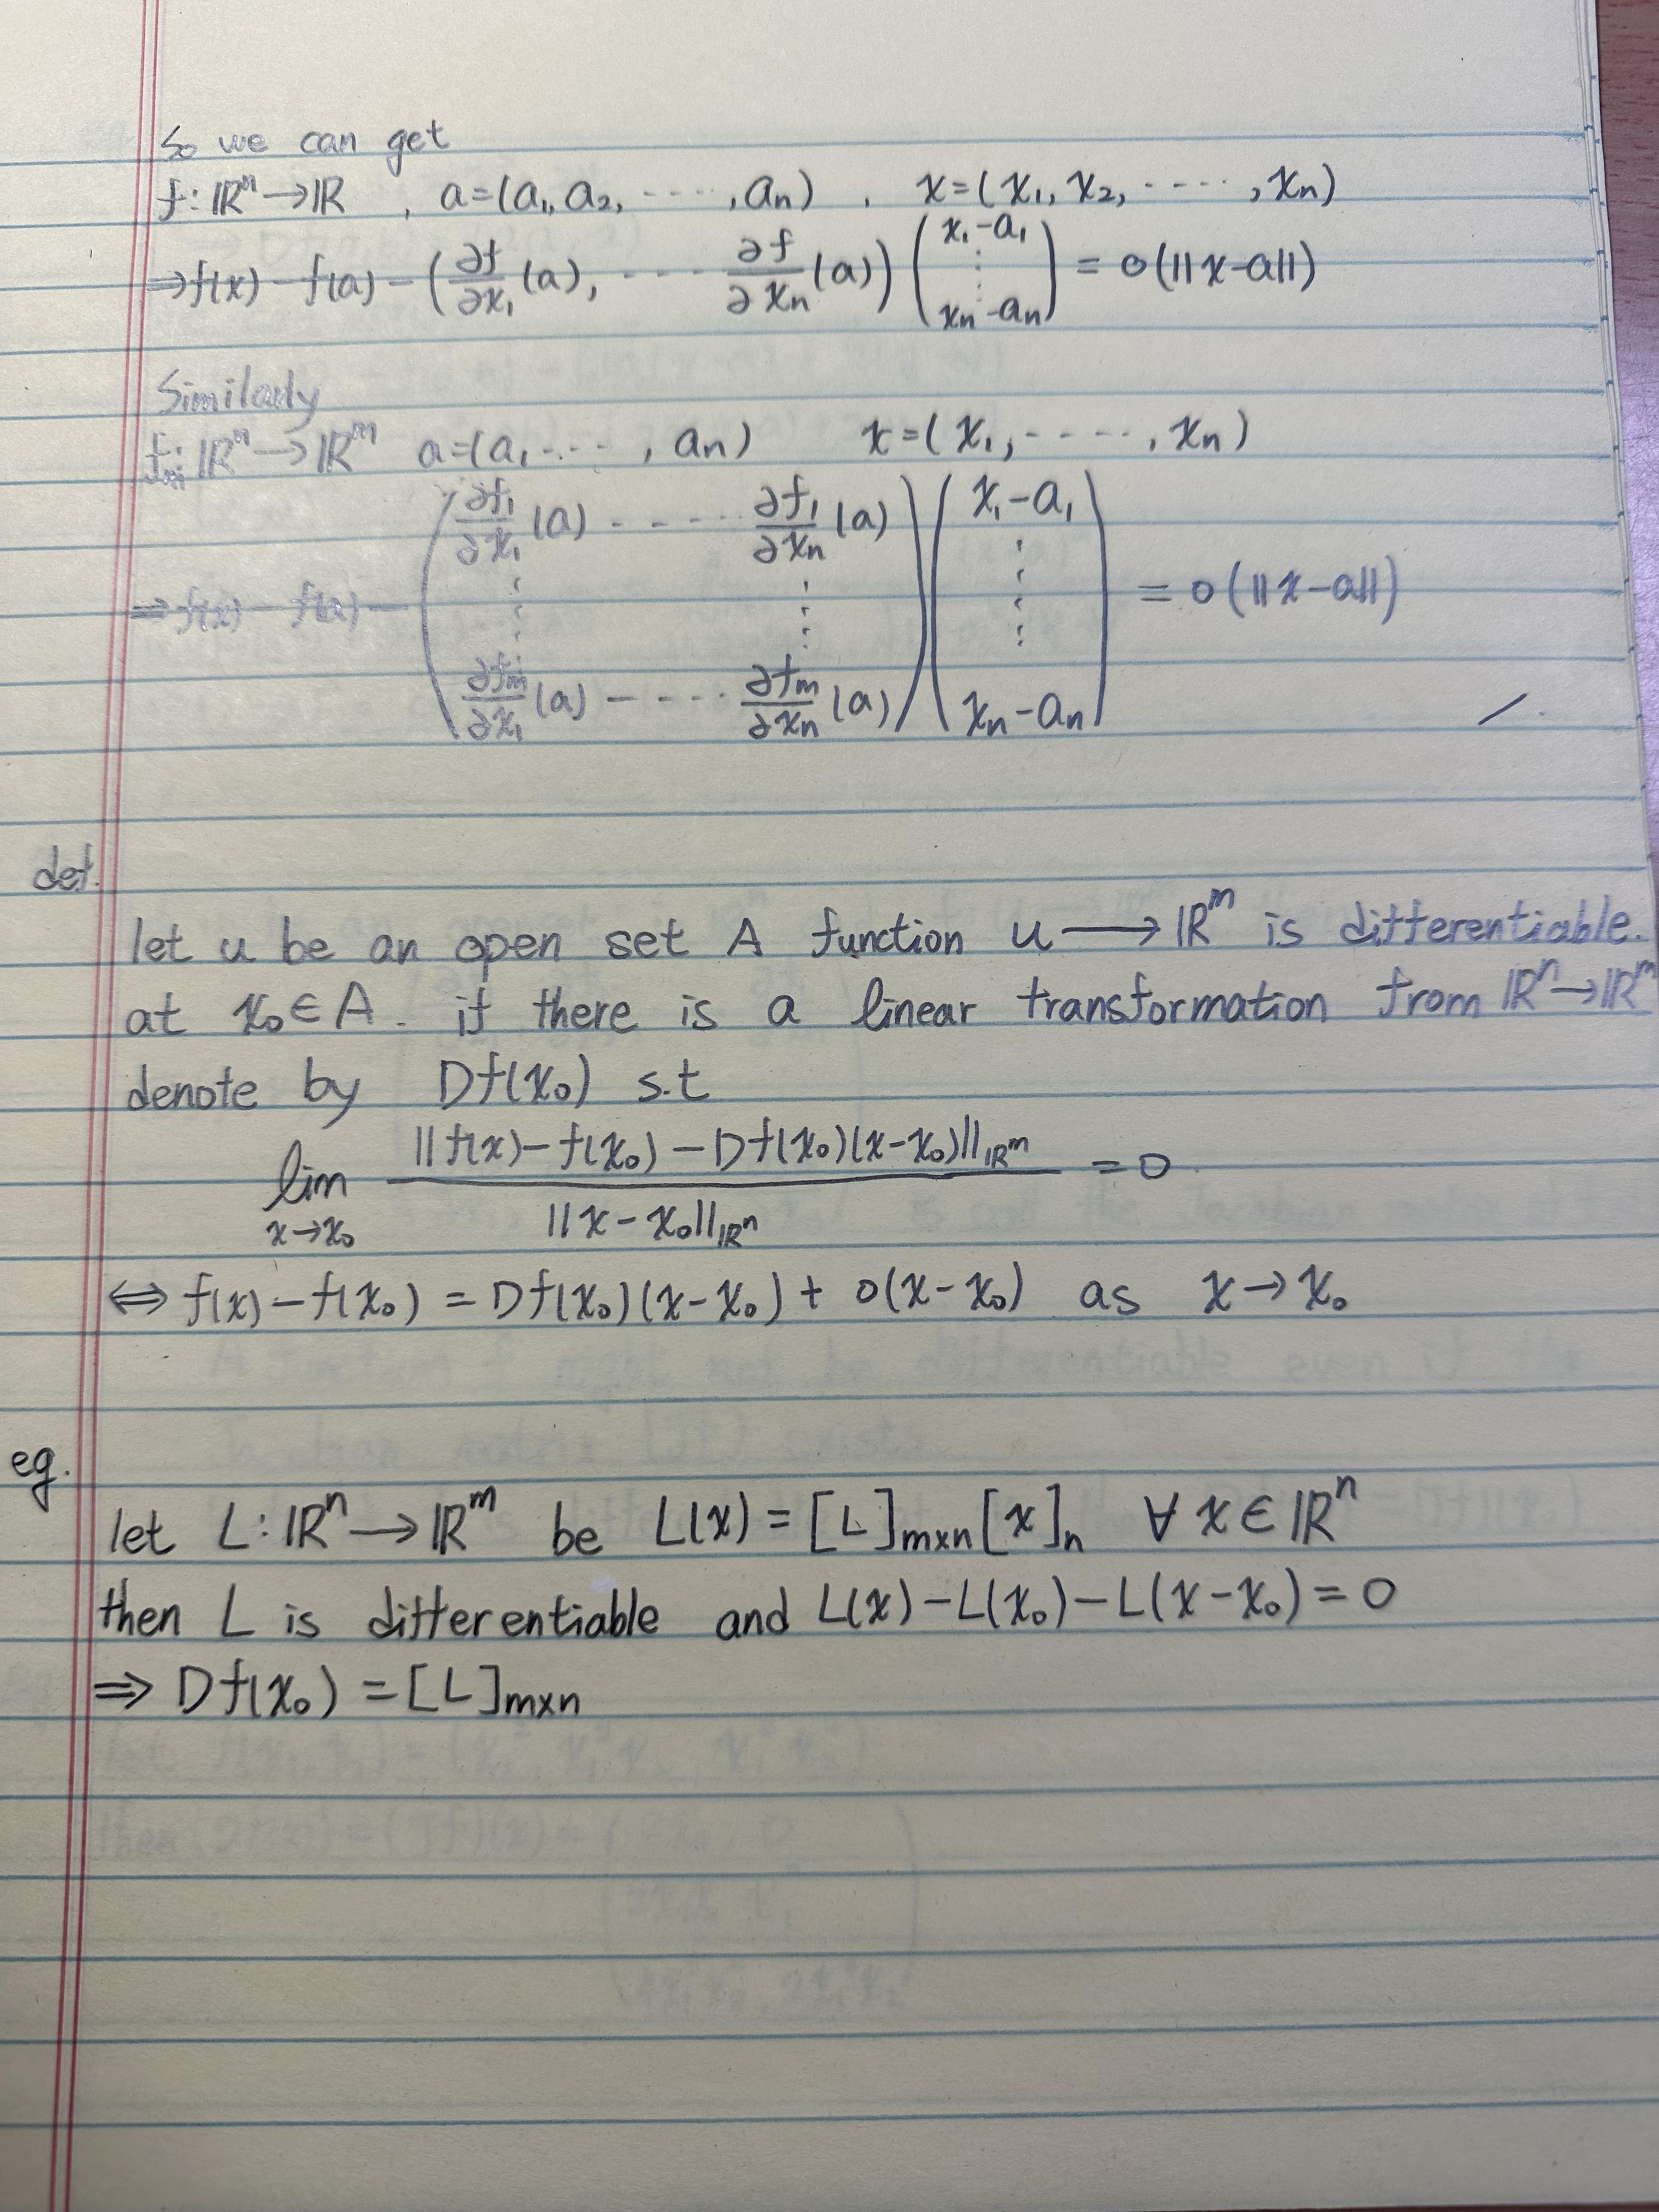 So we can get
f: ℝⁿ → ℝ , a=(a₁, a₂, ‑‑‑‑, aₙ) , x=(x₁, x₂, ‑‑‑‑, xₙ)
⇒ f(x) − f(a) − (∂f/∂x₁ (a), ‑‑‑‑ ∂f/∂xₙ (a)) (x₁−a₁ ⋮ xₙ−aₙ) = o(||x−a||)
Similarly
f: ℝⁿ → ℝᵐ a=(a₁ ‑‑‑‑, aₙ) x=(x₁, ‑‑‑‑, xₙ)
⇒ f(x) − f(a) − (∂f₁/∂x₁ (a) ‑‑‑‑ ∂f₁/∂xₙ (a) ⋮ ⋮ ∂fₘ/∂x₁ (a) ‑‑‑‑ ∂fₘ/∂xₙ (a)) (x₁−a₁ ⋮ xₙ−aₙ) = o(||x−a||)
def.
let u be an open set A function u → ℝᵐ is differentiable.
at x₀ ∈ A. if there is a linear transformation from ℝⁿ → ℝᵐ
denote by Df(x₀) s.t
lim x→x₀ ||f(x)−f(x₀)−Df(x₀)(x−x₀)||ℝᵐ / ||x−x₀||ℝⁿ = 0
⇔ f(x)−f(x₀) = Df(x₀)(x−x₀) + o(x−x₀) as x → x₀
eg.
let L: ℝⁿ → ℝᵐ be L(x) = [L]ₘₓₙ [x]ₙ ∀ x ∈ ℝⁿ
then L is differentiable and L(x)−L(x₀)−L(x−x₀)=0
⇒ Df(x₀) = [L]ₘₓₙ